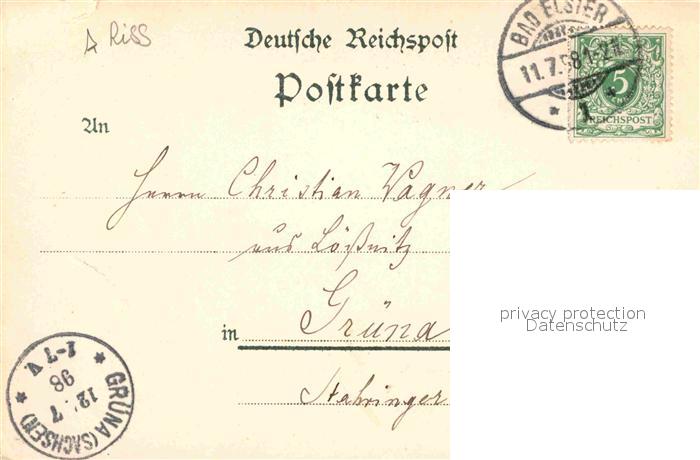 A Riss
Deutsche Reichspost
Postkarte
BAD ELSTER
11.7.98
1
5
REICHSPOST
An
Herrn Christian Wagner
aus Lößnitz
in Grüna
privacy protection
Datenschutz
GRÜNA (SACHSEN)
12 7
98
1-7 V.